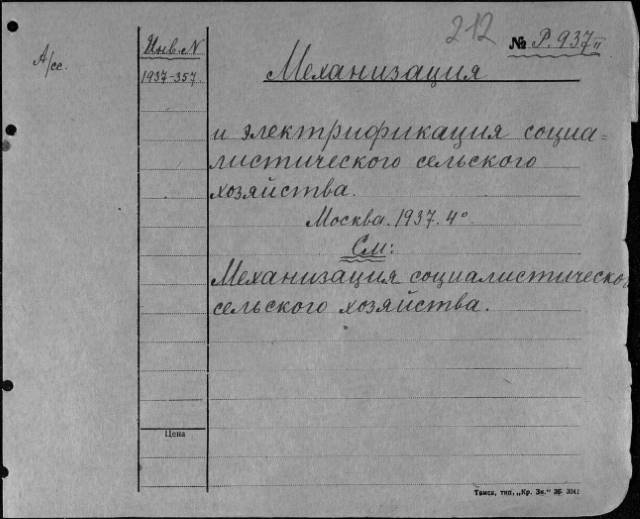 212
№ Р. 937 II
А/сс.
Инв. N
1937-357.
Механизация
и электрификация социа=
листического сельского
хозяйства.
Москва. 1937. 4°
См:
Механизация социалистическо
сельского хозяйства.
Цена
Томск, тип. „Кр. Зн."